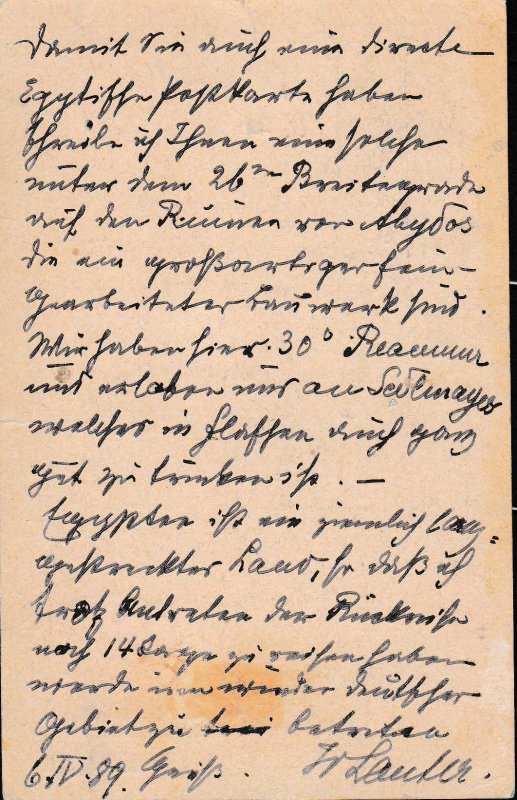 Damit Sie auch eine directe
Egyptische Postkarte haben
schreibe ich Ihnen eine solche
unter dem 26ten Breitegrade
auf den Ruinen von Abydos
die ein großartiger fein-
gearbeiteter Bauwerk sind.
Wir haben hier 30° Reaumur
und erlaben uns an Sedlmayer
welches in Flaschen auch ganz
gut zu trinken ist. —
Egypten ist ein ziemlich lang-
gestrecktes Land, so daß ich
trotz Antreten der Rückreise
noch 14 Tage zu reisen haben
werde um wieder deutsches
Gebiet zu betreten
6.IV.89. Gruß. Lauter.